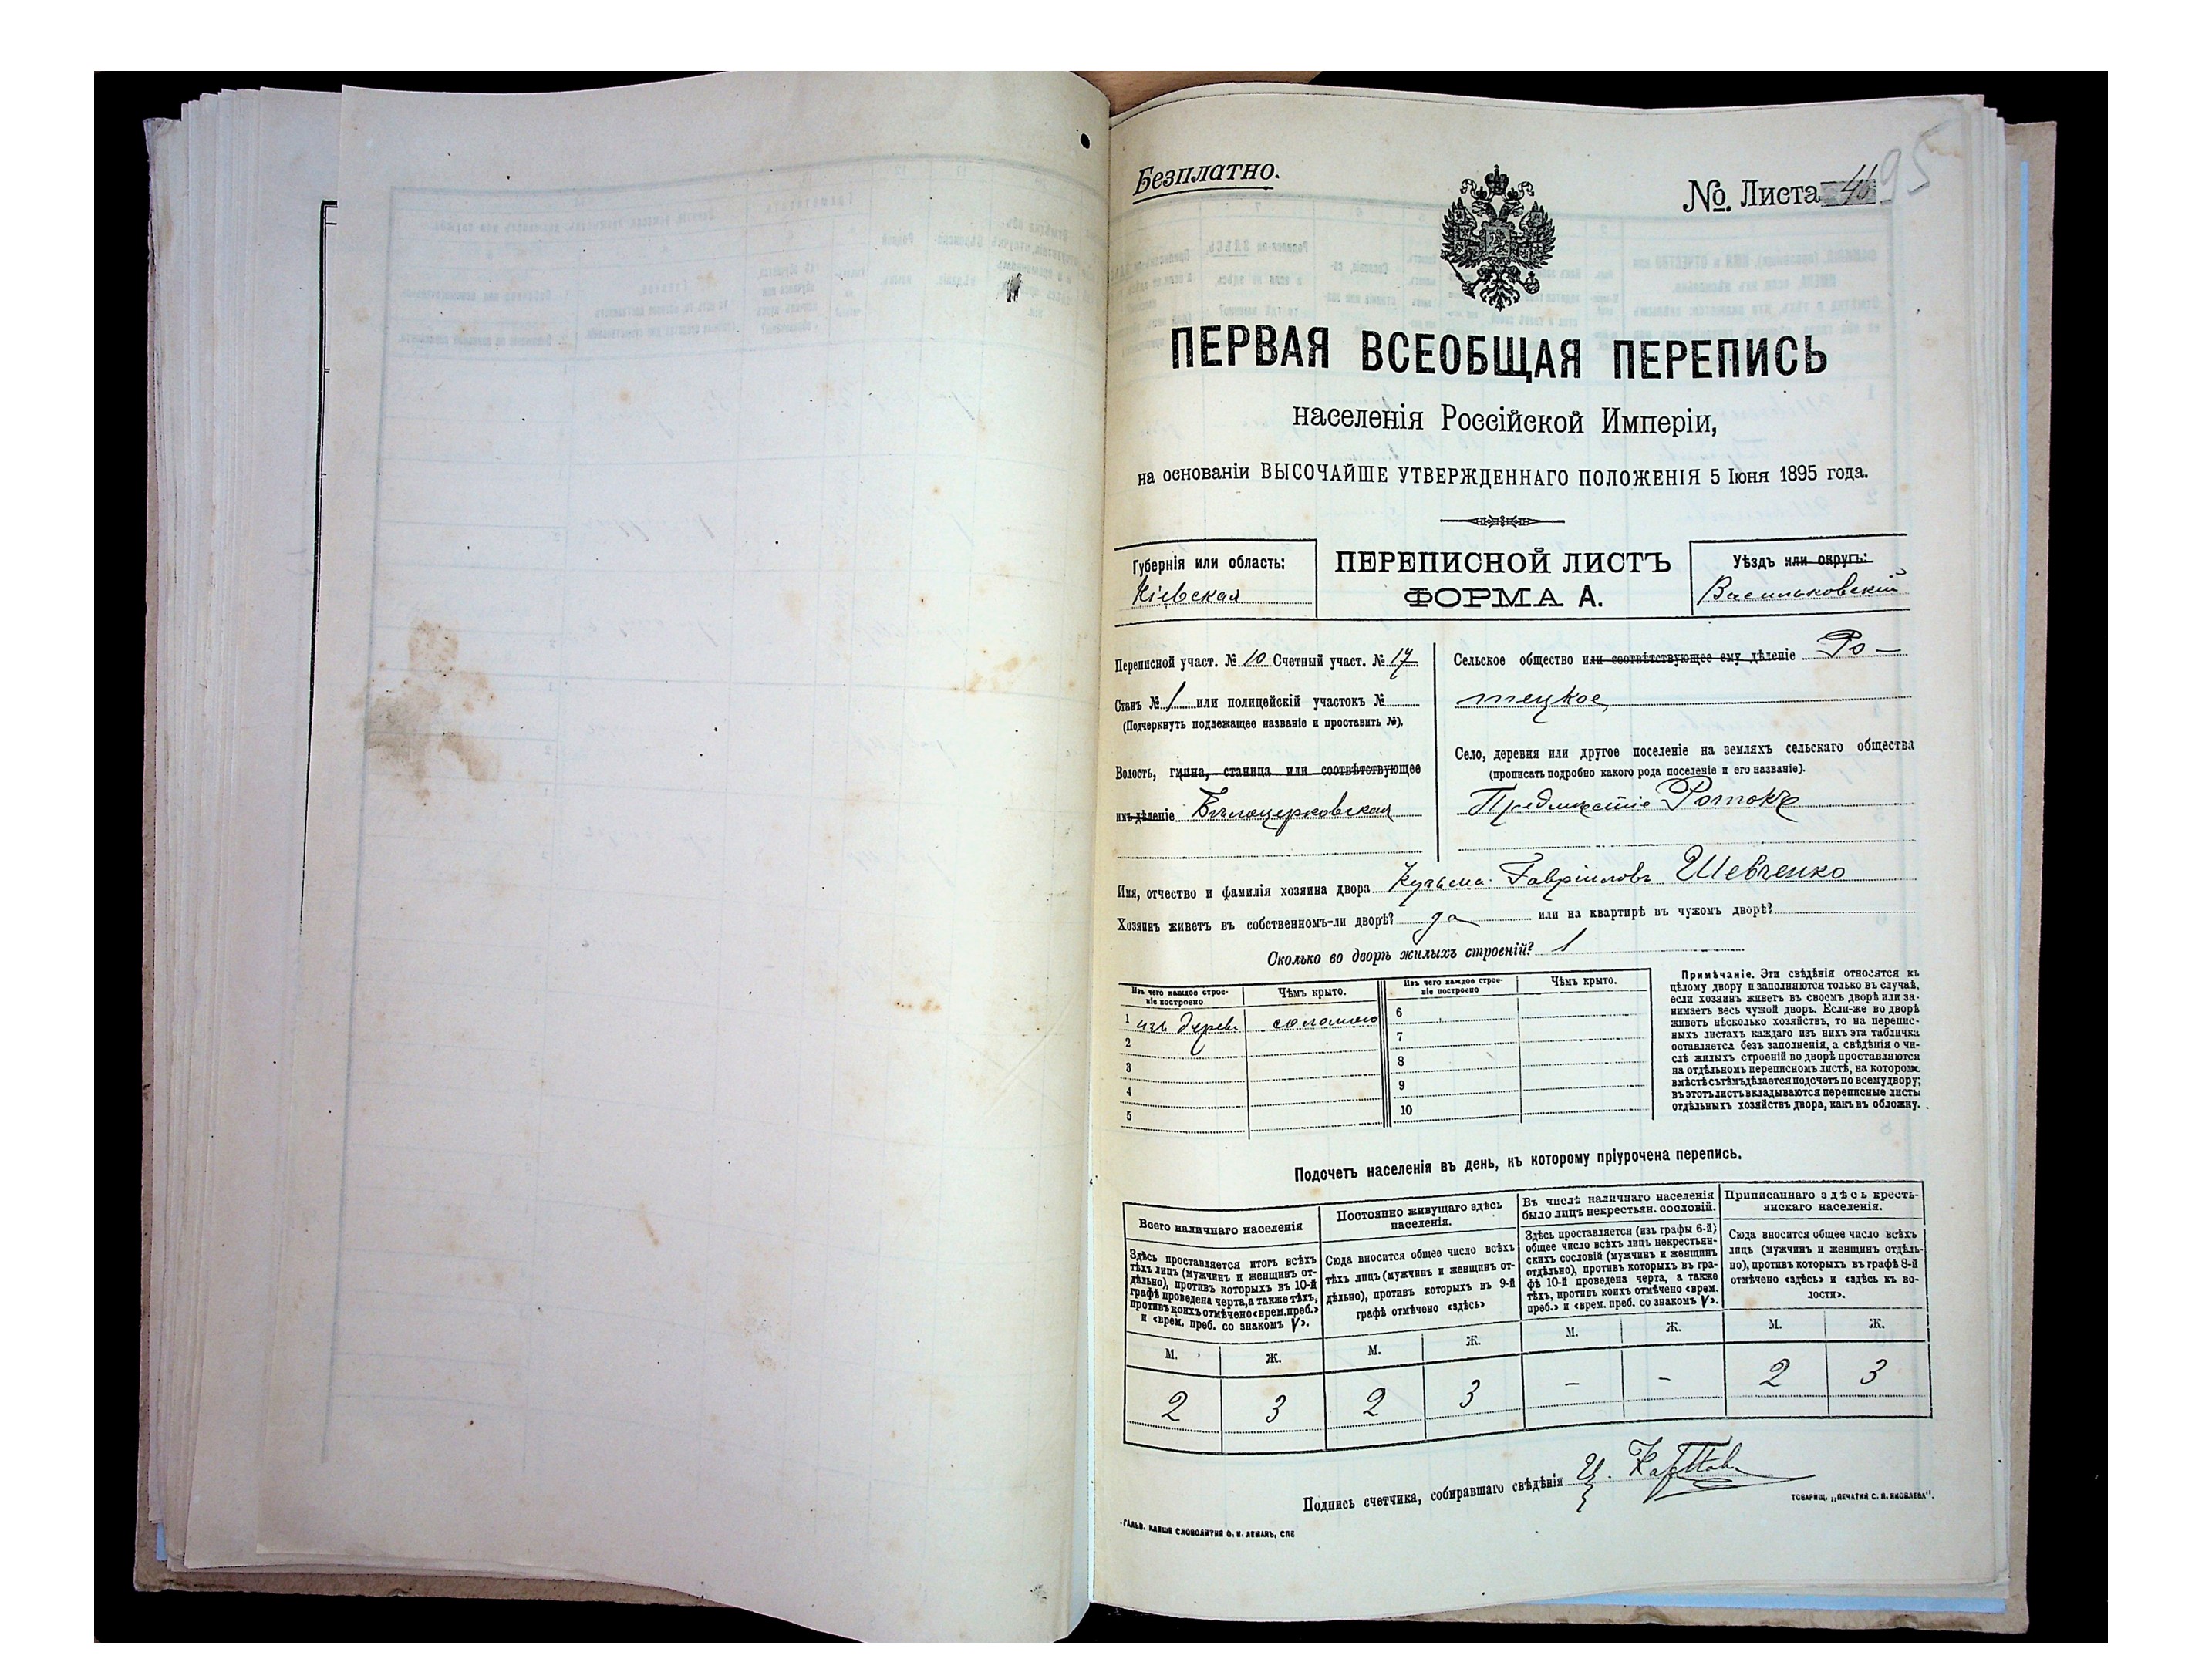 Безплатно.
№ Листа 46
95
ПЕРВАЯ ВСЕОБЩАЯ ПЕРЕПИСЬ
населенія Россійской Имперіи,
на основаніи ВЫСОЧАЙШЕ УТВЕРЖДЕННАГО ПОЛОЖЕНІЯ 5 Іюня 1895 года.
Губернія или область:
Кіевская
ПЕРЕПИСНОЙ ЛИСТЪ
ФОРМА А.
Уѣздъ или округъ:
Васильковскій
Переписной участ. № 10 Счетный участ. № 17
Станъ № 1 или полицейскій участокъ №
(Подчеркнуть подлежащее названіе и проставить №).
Волость, гмина, станица или соотвѣтствующее
имъ дѣленіе Бѣлоцерковская
Сельское общество или соотвѣтствующее ему дѣленіе Ро-
тецкое
Село, деревня или другое поселеніе на земляхъ сельскаго общества
(прописать подробно какого рода поселеніе и его названіе).
Предмѣстіе Ротокъ
Имя, отчество и фамилія хозяина двора Кузьма Гавріиловъ Шевченко
Хозяинъ живетъ въ собственномъ-ли дворѣ? да или на квартирѣ въ чужомъ дворѣ?
Сколько во дворѣ жилыхъ строеній? 1
Изъ чего каждое строе-
ніе построено
Чѣмъ крыто.
Изъ чего каждое строе-
ніе построено
Чѣмъ крыто.
1 изъ дерева соломою
2
3
4
5
6
7
8
9
10
Примѣчаніе. Эти свѣдѣнія относятся къ
цѣлому двору и заполняются только въ случаѣ,
если хозяинъ живетъ въ своемъ дворѣ или за-
нимаетъ весь чужой дворъ. Если-же во дворѣ
живетъ нѣсколько хозяйствъ, то на перепис-
ныхъ листахъ каждаго изъ нихъ эта табличка
оставляется безъ заполненія, а свѣдѣнія о чи-
слѣ жилыхъ строеній во дворѣ проставляются
на отдѣльномъ переписномъ листѣ, на которомъ
вмѣстѣ съ тѣмъ дѣлается подсчетъ по всему двору;
въ этотъ листъ вкладываются переписные листы
отдѣльныхъ хозяйствъ двора, какъ въ обложку.
Подсчетъ населенія въ день, къ которому пріурочена перепись.
Всего наличнаго населенія
Здѣсь проставляется итогъ всѣхъ
тѣхъ лицъ (мужчинъ и женщинъ от-
дѣльно), противъ которыхъ въ 10-й
графѣ проведена черта, а также тѣхъ,
противъ коихъ отмѣчено «врем. преб.»
и «врем. преб. со знакомъ V».
Постоянно живущаго здѣсь
населенія.
Сюда вносится общее число всѣхъ
тѣхъ лицъ (мужчинъ и женщинъ от-
дѣльно), противъ которыхъ въ 9-й
графѣ отмѣчено «здѣсь»
Въ числѣ наличнаго населенія
было лицъ некрестьян. сословій.
Здѣсь проставляется (изъ графы 6-й)
общее число всѣхъ лицъ некрестьян-
скихъ сословій (мужчинъ и женщинъ
отдѣльно), противъ которыхъ въ гра-
фѣ 10-й проведена черта, а также
тѣхъ, противъ коихъ отмѣчено «врем.
преб.» и «врем. преб. со знакомъ V».
Приписаннаго здѣсь кресть-
янскаго населенія.
Сюда вносится общее число всѣхъ
лицъ (мужчинъ и женщинъ отдѣль-
но), противъ которыхъ въ графѣ 8-й
отмѣчено «здѣсь» и «здѣсь въ во-
лости».
М. Ж. М. Ж. М. Ж. М. Ж.
2 3 2 3 - - 2 3
Подпись счетчика, собиравшаго свѣдѣнія
ТОВАРИЩ. „ПЕЧАТНЯ С. П. ЯКОВЛЕВА“.
ГАЛЬВ. КЛИШЕ СЛОВОЛИТНИ О. И. ЛЕМАНЪ, СПБ